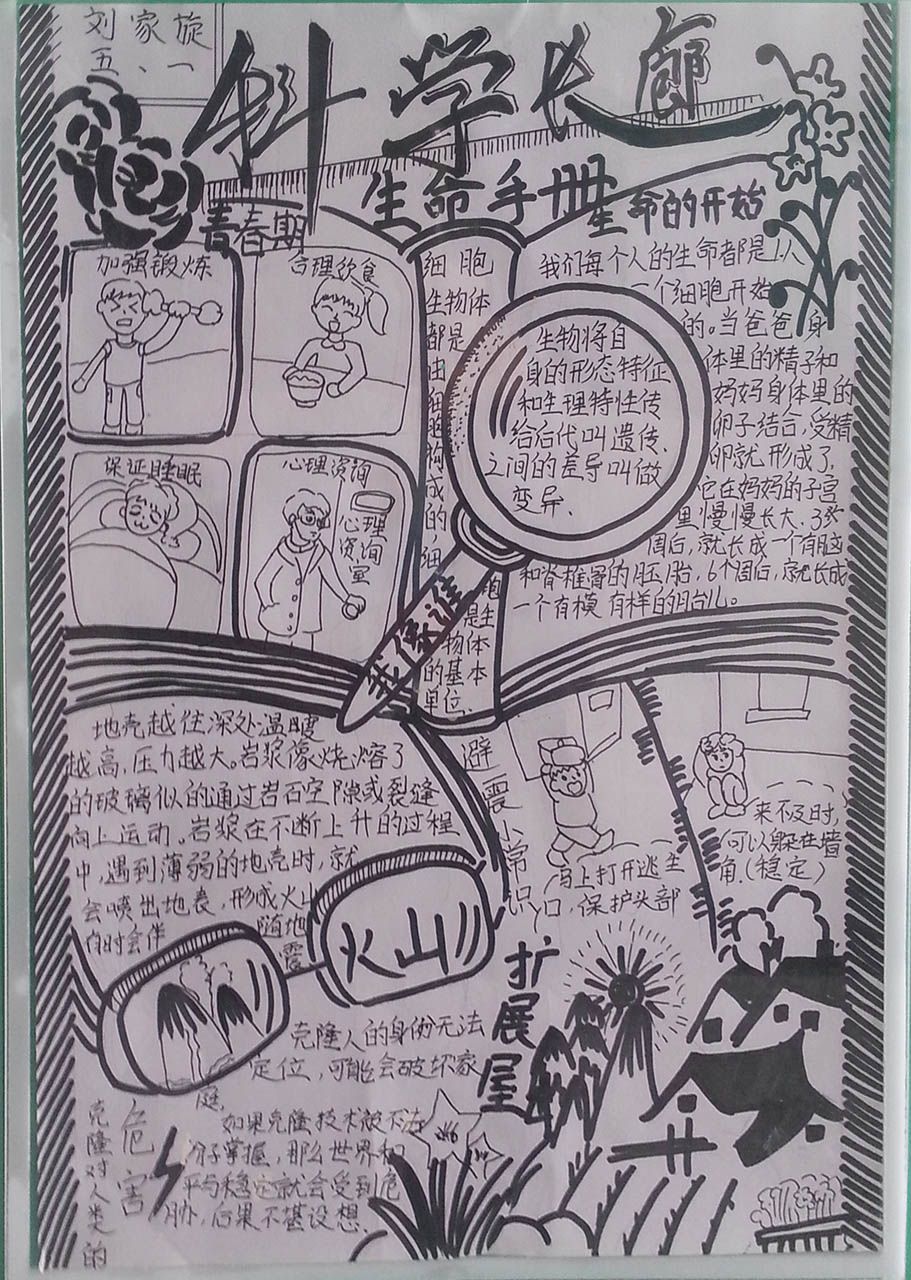 刘家旋
五、一
科学长廊
生命手册
青春期
加强锻炼
合理饮食
保证睡眠
心理资询
心理
资询
室
细胞
生物体
都是
由
细胞
构
成
的,
细
胞
是生
物体
的基本
单位.
生物将自
身的形态特征
和生理特性传
给后代叫遗传、
之间的差异叫做
变异.
我像谁
生命的开始
我们每个人的生命都是从
一个细胞开始
的。当爸爸身
体里的精子和
妈妈身体里的
卵子结合,受精
卵就形成了,
它在妈妈的子宫
里慢慢长大.3
周后,就长成一个有脑
和脊椎骨的胚胎,6个周后,就长成
一个有模有样的胎儿。
地壳越往深处温暖
越高,压力越大。岩浆像烧熔了
的玻璃似的通过岩石空隙或裂缝
向上运动。岩浆在不断上升的过程
中,遇到薄弱的地壳时,就
会喷出地表,形成火山
有时会伴
随地
震
火山
避震小常识
马上打开逃生
口,保护头部
来不及时,
可以躲在墙
角.(稳定)
扩展屋
克隆对人类的
危害
克隆人的身份无法
定位,可能会破坏家
庭.
如果克隆技术被不法
分子掌握,那么世界和
平与稳定就会受到危
胁,后果不甚设想.